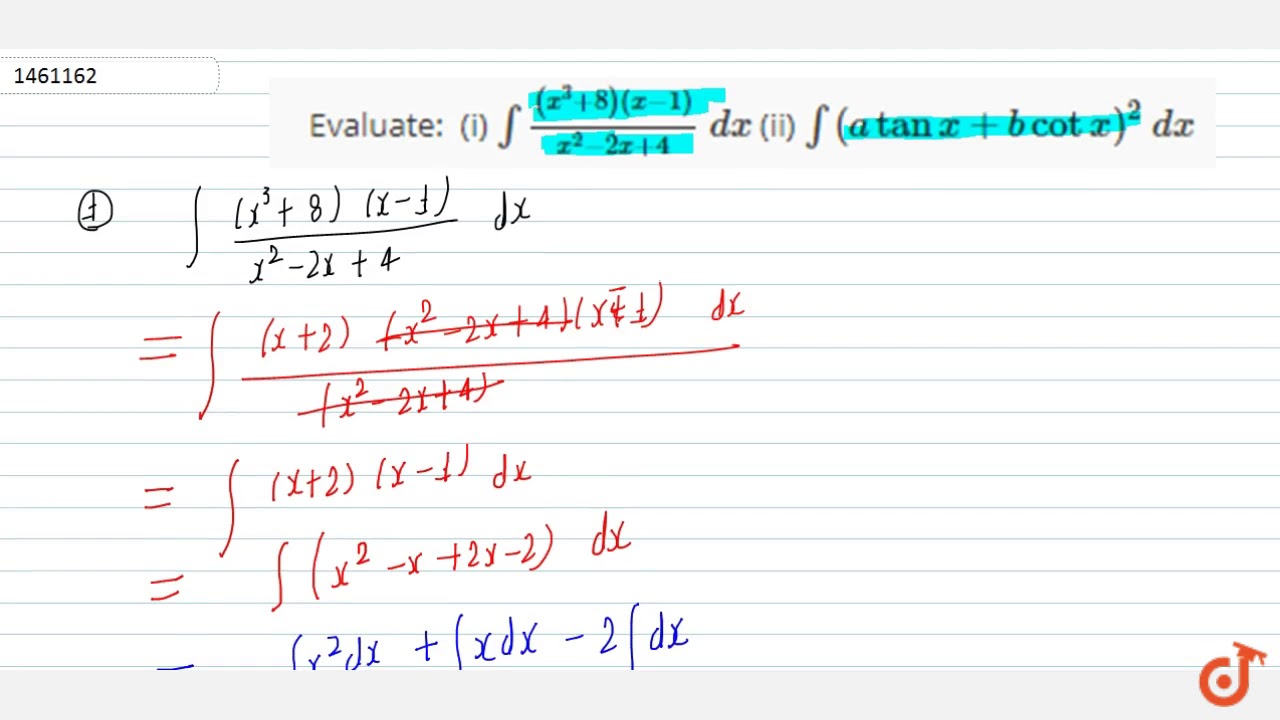 1461162
Evaluate: (i) ∫ (x³+8)(x−1) / x²−2x+4 dx (ii) ∫ (a tan x + b cot x)² dx
① ∫ (x³ + 8) (x−1) / x² − 2x + 4 dx
= ∫ (x+2) (x² − 2x + 4)(x−1) / (x² − 2x + 4) dx
= ∫ (x+2) (x−1) dx
= ∫ (x² − x + 2x − 2) dx
= ∫x²dx + ∫xdx − 2∫dx